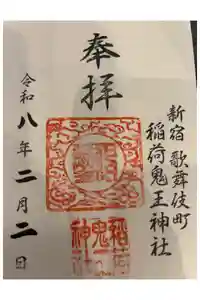 新宿 歌舞伎町
稲荷鬼王神社
奉拝
令和八年二月二日
稲荷
鬼王
神社